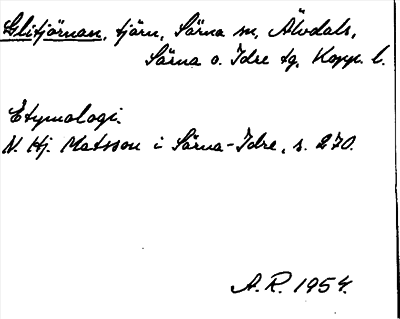 Glitjörnan, tjärn, Särna sn, Älvdals,
Särna o. Idre tg, Kopp. l.
Etymologi.
N. Hj. Matsson i Särna-Idre, s. 270.
A.R. 1954.